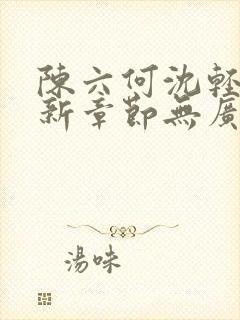 陳六何沈輕
新章節無廣
湯味